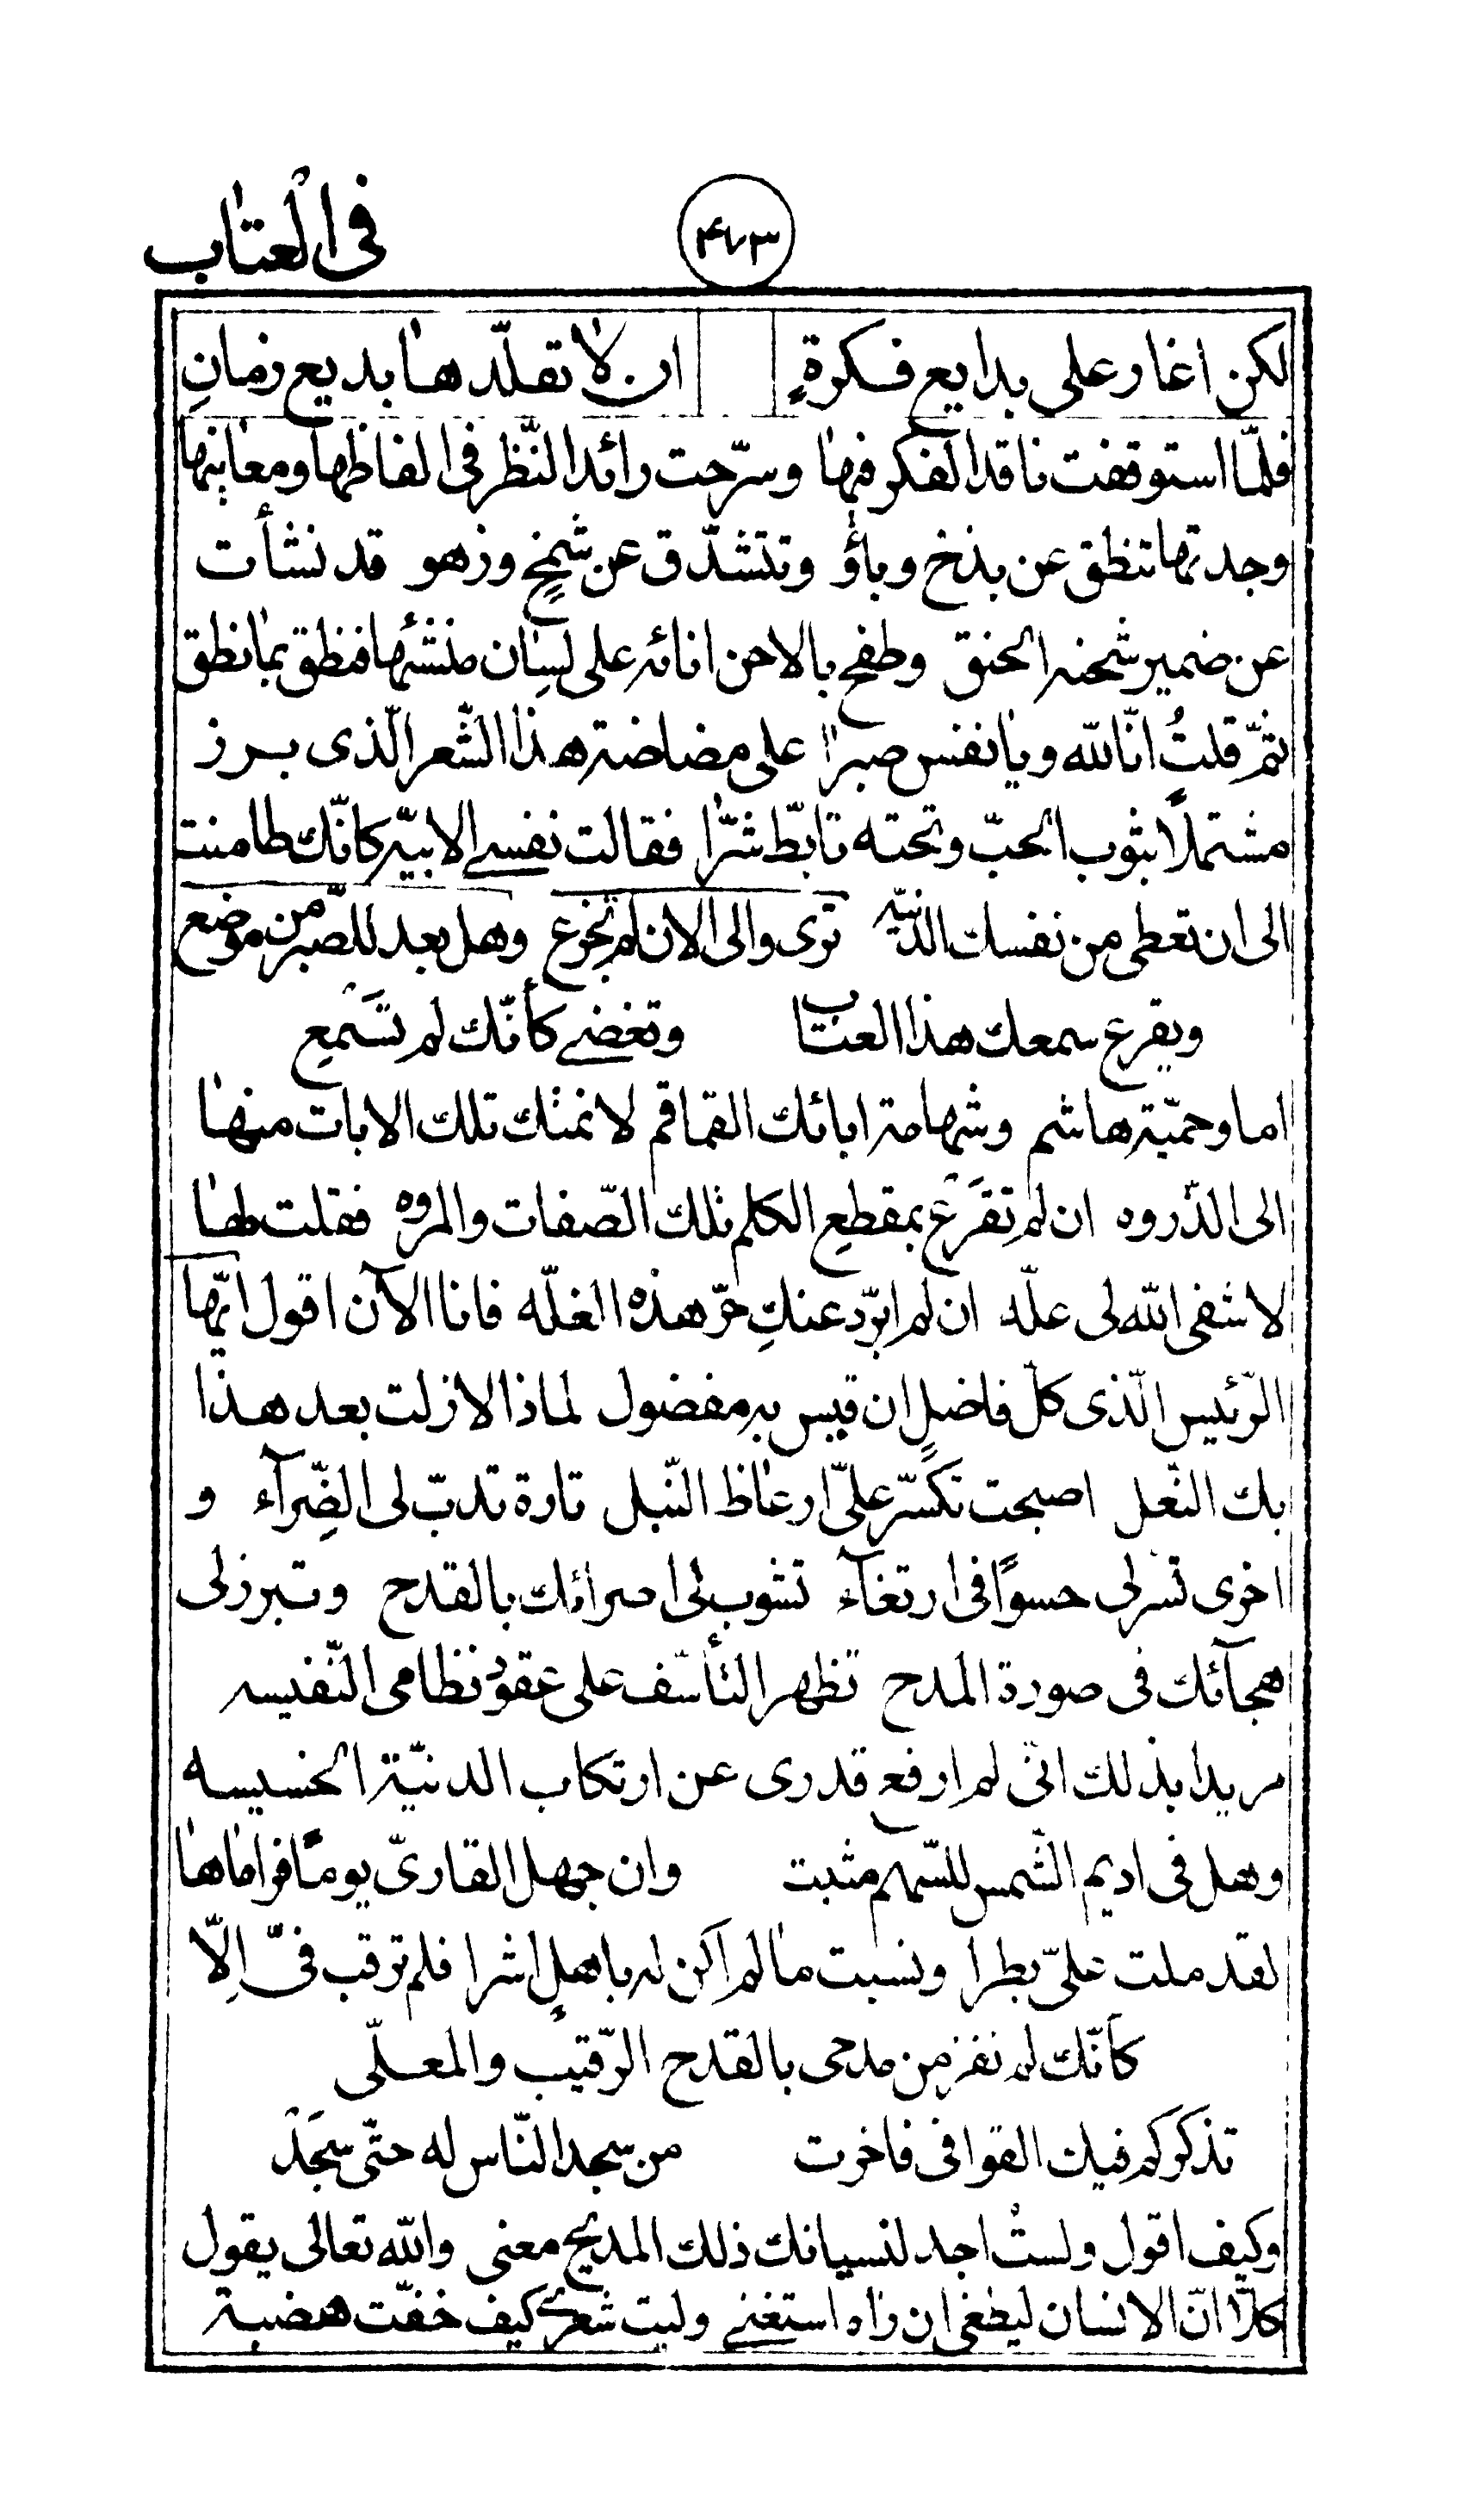 فى العتاب
۴۷۳
لكن اغار على بدايع فكرةٍ ان لا تقلّدها بديع زمانِ
فلمّا استوقفت ناقد الفكر فيها وسرّحت رائد النّظر فى الفاظها ومعاينها
وجدتها تنطق عن بذخ وباؤ وتتشدّق عن شمخٍ وزهو قد نشأت
عن ضمير شحنه الحنق وطفح بالاحن انائه على لسان منشئها فنطق بما نطق
ثمّ قلتُ انّا لله ويا نفس صبرا على مضاضة هذا الشّعر الّذى برز
مشتملاً بثوب الحبّ وتحته تابّط شرّا فقالت نفسے الابيّه كانّك طامنت
الى ان تعطى من نفسك الدّنيّه ترى والى الان لم تجزع وهل بعد للصّبر من موضع
ويقرع سمعك هذا العتاب وتغضے كأنّك لم تسمع
اما وحميّة هاشم وشهامة ابائك القماقم لا نمتك تلك الابات منها
الى الذّروه ان لم تقرع بمقطع الكلم تلك الصّفات والمروه فقلت لها
لا شفى الله لى علّه ان لم ابرّد عنكِ حرّ هذه الغلّه فانا الآن اقول ايّها
الرّئيس الّذى كلّ فاضلٍ ان قيس به مفضول لماذا لا زلت بعد هذا
بك النّعل اصبحت تكسّر علىّ ارعاظ النّبل تارة تدبّ لى الضّرآء و
اخرى تسرلى حسوًا فى ارتغآء تشوب لى اصرائك بالقدح وتبرز لى
هجآئك فى صورة المدح تظهر التأسّف على عقود نظامى النّفيسه
مريدا بذلك انّى لم ارفع قدرى عن ارتكاب الدنيّة الخسيسه
وهل فى اديم الشّمس للسّهم مثبت وان جهل القارىّ يومًا فراماها
لقد ملت علىّ بطرا ونسبت ما لم اكن له باهلٍ اشرا فلم ترقب فىّ اِلّا
كأنّك لم تفز من مدحى بالقدح الرّقيب والمعلّى
تذكر كم فيك القوافى فاخرت من سجد النّاس له حتّى سجَدْ
وكيف اقول ولستُ اجد لنسيانك ذلك المديح معنى والله تعالى يقول
كلّا انّ الانسان ليطغى ان راه استغنے وليت شعرى كيف خفّت هضبة